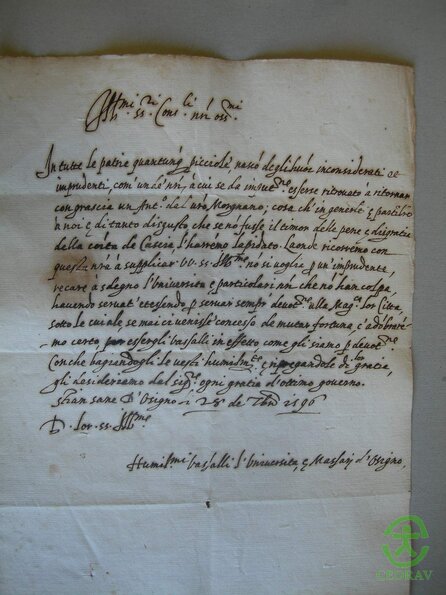 Ill.mi ss.ri Cons.li n.ri oss.mi
In tutte le patrie quantunq. picciole, nasce degli huoi inconsiderati et
imprudenti, com'un de n.ri, a cui se da essersi ritrovato a ritornar
con grascia un Ant.o de Caro Morgnano; cosa ch'in generle e particolre
a noi è di tanto disgusto che se no fusse il timor delle pene e disgratia
della corte de Cascia l'harremo lapidato. La onde ricorremo con
questa n.ra à supplicar VV. ss. Ill.me nó si voglia p. un imprudente,
recare à sdegno l'Università e particolari nri che no han colpa
havendo servat' et essendo p. servar sempre devot.ne alla Mag.ca lor Citta
sotto le cui ale se mai ci venisse concesso de mutar fortuna ci adoprare-
mo certo essergli vassalli in effetto come gli siamo p. devot.ne
Con che basciandogli le vesti humilm.te e pregandole di gratia,
gli desideriamo dal sig.re ogni gratia d'ottimo governo.
D'Usigno li 28 de 1596
D. lor. ss. Ill.me
Humil.mi vassalli l'Università, e Massari d'Usigno.
CEDRAV